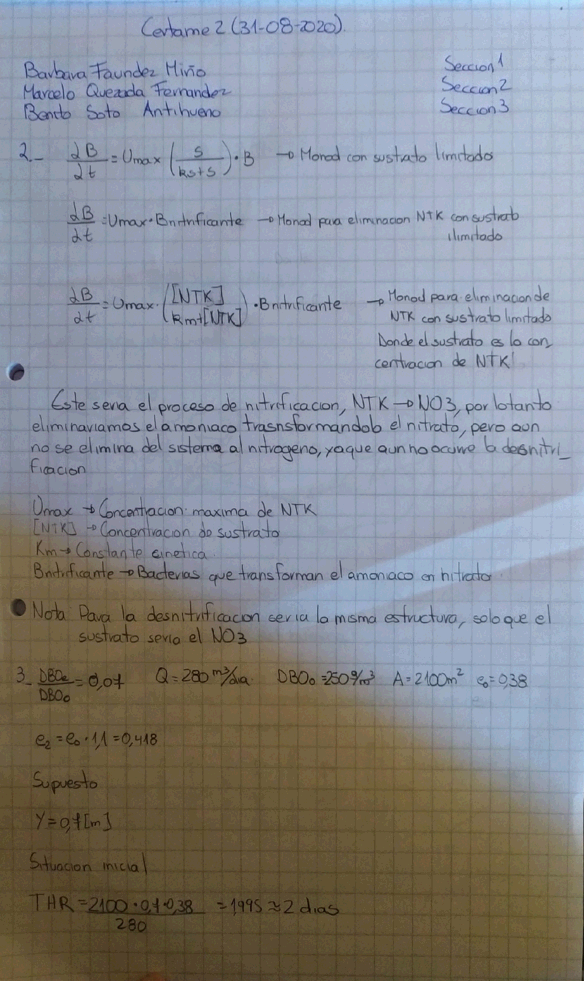 Certame 2 (31-08-2020).
Barbara Faundez Miño Seccion 1
Marcelo Quezada Fernandez Seccion 2
Benito Soto Antihueno Seccion 3
2- dB/dt = Umax (S/(ks+s)) · B → Monod con sustrato limitado
dB/dt = Umax · Bnitrificante → Monod para eliminacion NTK con sustrato
ilimitado
dB/dt = Umax · ([NTK]/(Km+[NTK])) · Bnitrificante → Monod para eliminacion de
NTK con sustrato limitado
Donde el sustrato es la con
centracion de NTK
Este seria el proceso de nitrificacion, NTK → NO3, por lo tanto
eliminariamos el amoniaco trasnsformandolo el nitrato, pero aun
no se elimina del sistema al nitrogeno, ya que aun no ocurre la desnitri_
ficacion
Umax → Concentracion maxima de NTK
[NTK] → Concentracion do sustrato
Km → Constante cinetica
Bnitrificante → Bacterias que transforman el amoniaco en nitrato
Nota Para la desnitrificacion seria la misma estructura, solo que el
sustrato seria el NO3
3_ DBOe/DBOo = 0,07 Q = 280 m³/dia DBOo = 250 g/m³ A = 2100 m² eo = 0,38
e2 = eo · 1,1 = 0,418
Supuesto
Y = 0,7 [m]
Situacion inicial
THR = 2100 · 0,7 · 0,38 / 280 = 1,995 ≈ 2 dias